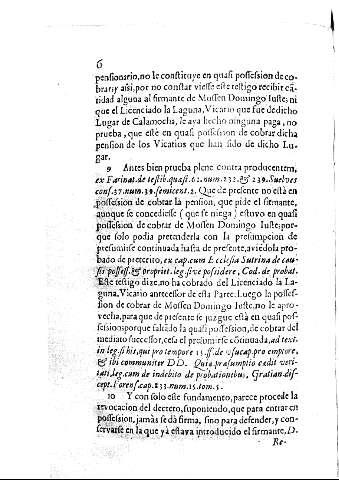 6
pensionario, no le constituye en quasi possession de co-
brar; y assi, por no constar viesse este testigo recibir cã-
tidad alguna al firmante de Mossen Domingo Iuste, ni
que el Licenciado la Laguna, Vicario que fue de dicho
Lugar de Calamocha, le aya hecho ninguna paga, no
prueba, que estè en quasi possession de cobrar dicha
pension de los Vicarios que han sido de dicho Lu-
gar.
9 Antes bien prueba plene contra producentem,
ex Farinat. de testib. quæst. 62. num. 232. & 239. Suelves
cons. 37. num. 39. semicent. 2. Que de presente no està en
possession de cobrar la pension, que pide el firmante,
aunque se concediesse (que se niega) estuvo en quasi
possession de cobrar de Mossen Domingo Iuste; por-
que solo podia pretenderla con la presumpcion de
presumirse continuada hasta de presente, aviédola pro-
bado de preterito, ex cap. cum Ecclesia Sutrina de cau-
sis possess. & propriet. leg. sive possidere, Cod. de probat.
Este testigo dize, no ha cobrado del Licenciado la La-
guna, Vicario antecessor de esta Parte. Luego la posses-
sion de cobrar de Mossen Domingo Iuste, no le apro-
vecha, para que de presente se juzgue està en quasi pos-
session; porque faltado la quasi possession, de cobrar del
mediato successor, cessa el presumirse côtinuada, ad text.
in leg. si his, qui pro tempore 15. ff. de vsucap. pro emptore,
& ibi communiter DD. Quia præsumptio cedit veri-
tati, leg. cum de indebito de probationibus, Gratian. dis-
cept. forens. cap. 233. num. 15. tom. 5.
10 Y con solo este fundamento, parece procede la
revocacion del decreto, suponiendo, que para entrar en
possession, jamàs se dà firma, sino para defender, y con-
servarse en la que yà estava introducido el firmante, D.
Re-